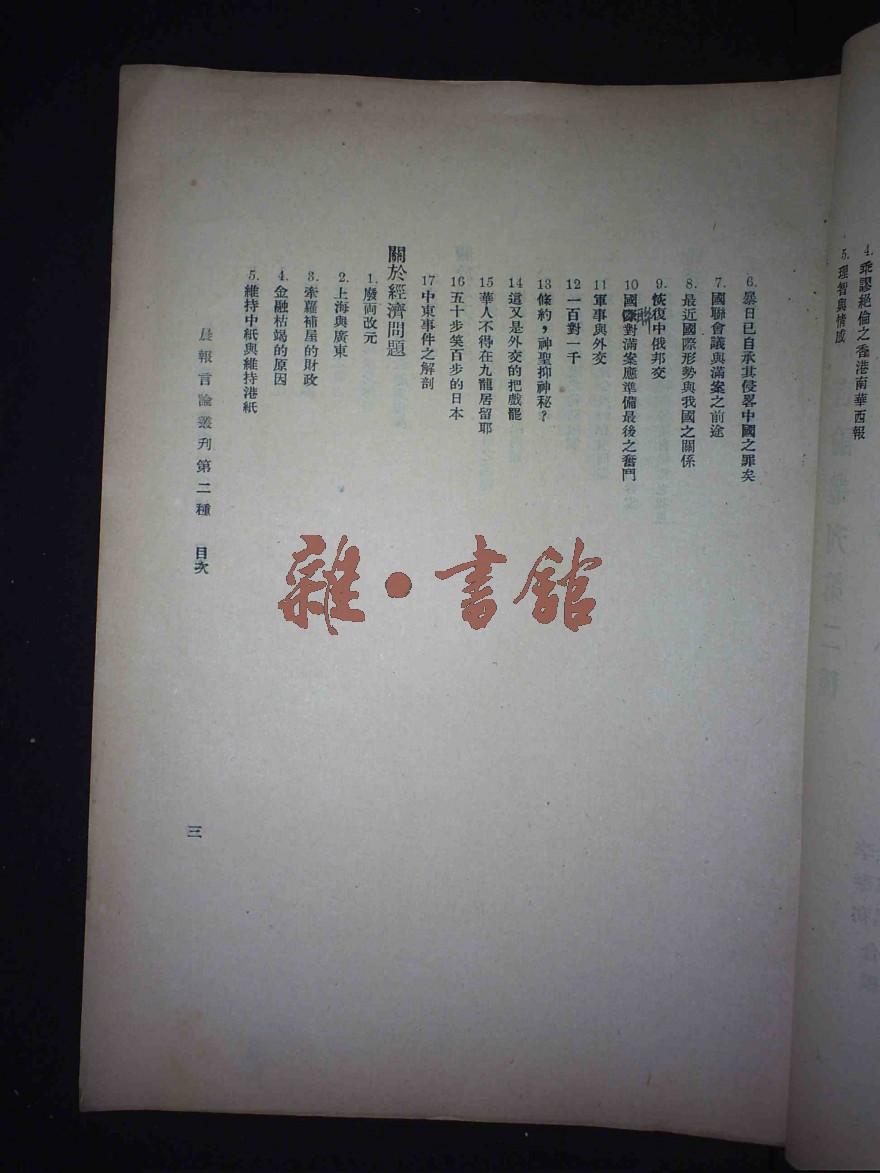 4. 乖謬絕倫之香港南華西報
5. 理智與情感
6. 暴日已自承其侵畧中國之罪矣
7. 國聯會議與滿案之前途
8. 最近國際形勢與我國之關係
9. 恢復中俄邦交
10 國際聯對滿案應準備最後之奮鬥
11 軍事與外交
12 一百對一千
13 條約，神聖抑神秘？
14 這又是外交的把戲罷
15 華人不得在九龍居留耶
16 五十步笑百步的日本
17 中東事件之解剖
關於經濟問題
1. 廢両改元
2. 上海與廣東
3. 牽蘿補屋的財政
4. 金融枯竭的原因
5. 維持中紙與維持港紙
晨報言論叢刊第二種 目次
三
雜·書舘